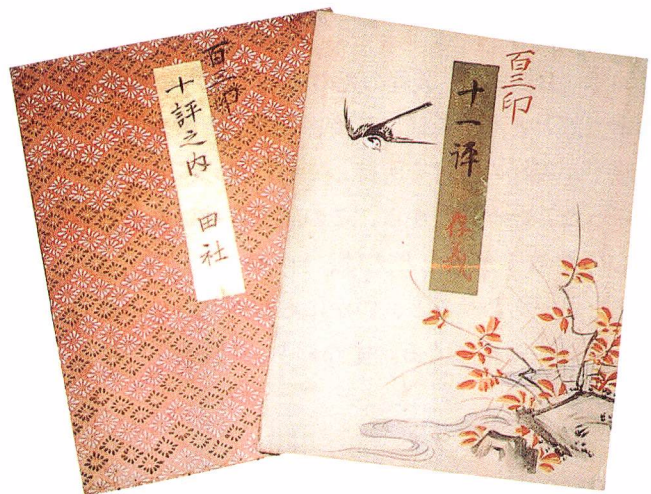 百三印
十評之内 田社
百三印
十一評 存義